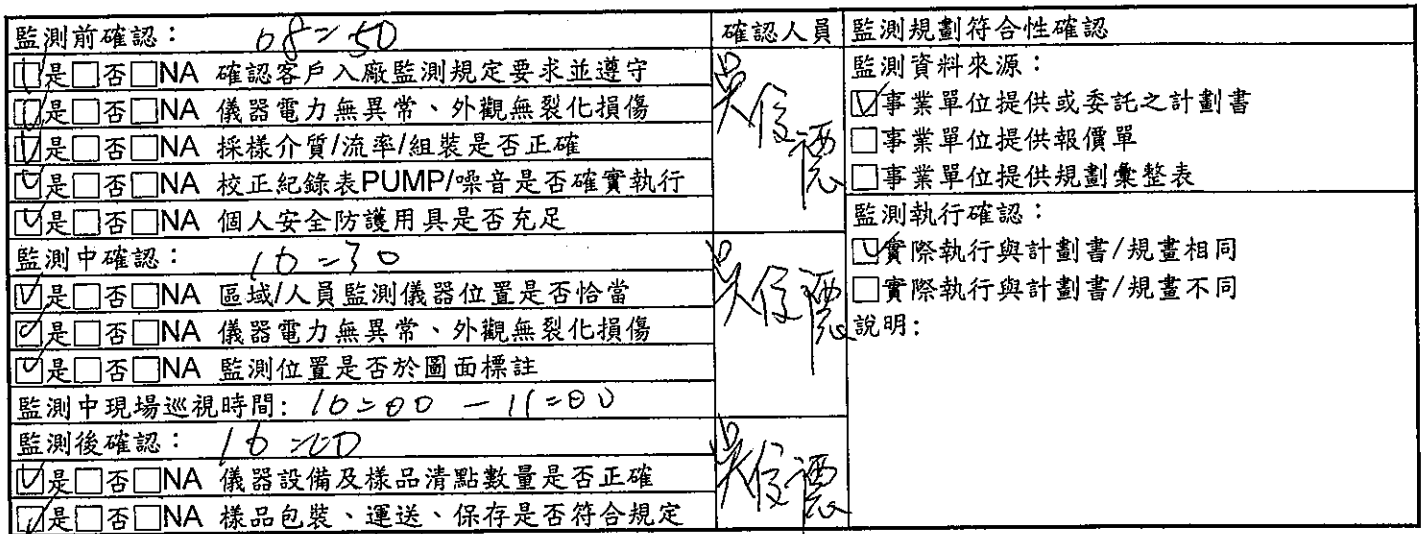 監測前確認： 08:50
☑是□否□NA 確認客戶入廠監測規定要求並遵守
☑是□否□NA 儀器電力無異常、外觀無裂化損傷
☑是□否□NA 採樣介質/流率/組裝是否正確
☑是□否□NA 校正紀錄表PUMP/噪音是否確實執行
☑是□否□NA 個人安全防護用具是否充足
監測中確認： 10:30
☑是□否□NA 區域/人員監測儀器位置是否恰當
☑是□否□NA 儀器電力無異常、外觀無裂化損傷
☑是□否□NA 監測位置是否於圖面標註
監測中現場巡視時間: 10:00 - 11:00
監測後確認：
☑是□否□NA 儀器設備及樣品清點數量是否正確
☑是□否□NA 樣品包裝、運送、保存是否符合規定
確認人員
監測規劃符合性確認
監測資料來源：
☑事業單位提供或委託之計劃書
□事業單位提供報價單
□事業單位提供規劃彙整表
監測執行確認：
☑實際執行與計劃書/規畫相同
□實際執行與計劃書/規畫不同
說明: